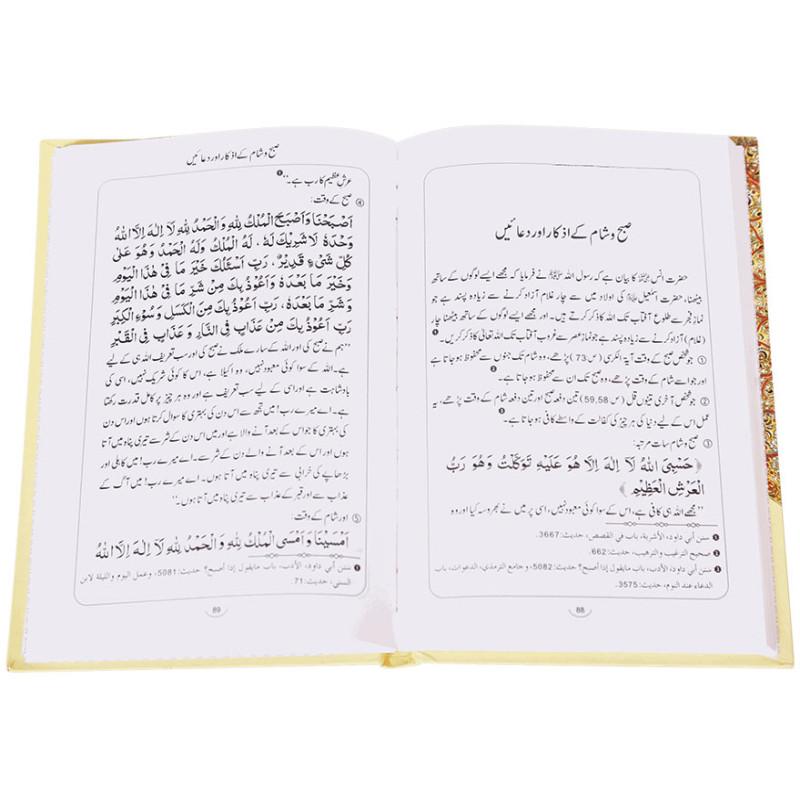 صبح و شام کے اذکار اور دعائیں
حضرت انس رضی اللہ عنہ کا بیان ہے کہ رسول اللہ ﷺ نے فرمایا کہ مجھے ایسے لوگوں کے ساتھ
بیٹھنا، حضرت اسمٰعیل علیہ السلام کی اولاد میں سے چار غلام آزاد کرنے سے زیادہ پسند ہے جو
نماز فجر سے طلوع آفتاب تک اللہ کا ذکر کرتے ہیں۔ اور مجھے ایسے لوگوں کے ساتھ بیٹھنا چار
(غلام) آزاد کرنے سے زیادہ پسند ہے جو نماز عصر سے غروب آفتاب تک اللہ تعالیٰ کا ذکر کریں۔ ❶
① جو شخص صبح کے وقت آیۃ الکرسی (ص 73) پڑھے، وہ شام تک جنوں سے محفوظ ہو جاتا ہے
اور جو اسے شام کو پڑھے، وہ صبح تک ان سے محفوظ ہو جاتا ہے۔ ❷
② جو شخص آخری تینوں قل (ص 59,58) تین دفعہ صبح اور تین دفعہ شام کے وقت پڑھے، یہ
عمل اس کے لیے دنیا کی ہر چیز کی کفالت کے واسطے کافی ہو جاتا ہے۔ ❸
③ صبح و شام سات مرتبہ:
﴿حَسْبِيَ اللهُ لَا إِلٰهَ إِلَّا هُوَ عَلَيْهِ تَوَكَّلْتُ وَهُوَ رَبُّ
الْعَرْشِ الْعَظِيْمِ﴾
”مجھے اللہ ہی کافی ہے، اس کے سوا کوئی معبود نہیں، اسی پر میں نے بھروسہ کیا اور وہ
❶ سنن أبي داود، الأشربة، باب في القصص، حديث:3667.
❷ صحيح الترغيب والترهيب، حديث:662.
❸ سنن أبي داود، الأدب، باب مايقول إذا أصبح؟ حديث:5082، و جامع الترمذي، الدعوات، باب
الدعاء عند النوم، حديث:3575.
88
صبح و شام کے اذکار اور دعائیں
عرشِ عظیم کا رب ہے۔“ ❶
④ صبح کے وقت:
اَصْبَحْنَا وَاَصْبَحَ الْمُلْكُ لِلّٰهِ وَالْحَمْدُ لِلّٰهِ لَآ اِلٰهَ اِلَّا اللهُ
وَحْدَهٗ لَا شَرِيْكَ لَهٗ، لَهُ الْمُلْكُ وَلَهُ الْحَمْدُ وَهُوَ عَلٰى
كُلِّ شَيْءٍ قَدِيْرٌ، رَبِّ اَسْئَلُكَ خَيْرَ مَا فِيْ هٰذَا الْيَوْمِ
وَخَيْرَ مَا بَعْدَهٗ وَاَعُوْذُ بِكَ مِنْ شَرِّ مَا فِيْ هٰذَا الْيَوْمِ
وَشَرِّ مَا بَعْدَهٗ، رَبِّ اَعُوْذُ بِكَ مِنَ الْكَسَلِ وَسُوْءِ الْكِبَرِ
رَبِّ اَعُوْذُ بِكَ مِنْ عَذَابٍ فِي النَّارِ وَ عَذَابٍ فِي الْقَبْرِ
”ہم نے صبح کی اور اللہ کے سارے ملک نے صبح کی اور سب تعریف اللہ ہی کے لیے
ہے۔ اللہ کے سوا کوئی معبود نہیں، وہ اکیلا ہے، اس کا کوئی شریک نہیں، اسی کی
بادشاہت ہے اور اسی کے لیے سب تعریف ہے اور وہ ہر چیز پر کامل قدرت رکھتا
ہے۔ اے میرے رب! میں تجھ سے اس دن کی بہتری کا سوال کرتا ہوں اور اس دن
کی بہتری کا جو اس کے بعد آنے والا ہے اور میں اس دن کے شر سے تیری پناہ میں آتا
ہوں اور اس کے بعد آنے والے دن کے شر سے۔ اے میرے رب! میں کاہلی اور
بڑھاپے کی خرابی سے تیری پناہ میں آتا ہوں۔ اے میرے رب! میں آگ کے
عذاب سے اور قبر کے عذاب سے تیری پناہ میں آتا ہوں۔“
⑤ اور شام کے وقت:
اَمْسَيْنَا وَاَمْسَى الْمُلْكُ لِلّٰهِ وَالْحَمْدُ لِلّٰهِ لَآ اِلٰهَ اِلَّا اللهُ
❶ سنن أبي داود، الأدب، باب مايقول إذا أصبح؟ حديث:5081، وعمل اليوم والليلة لابن
السني، حديث:71.
89